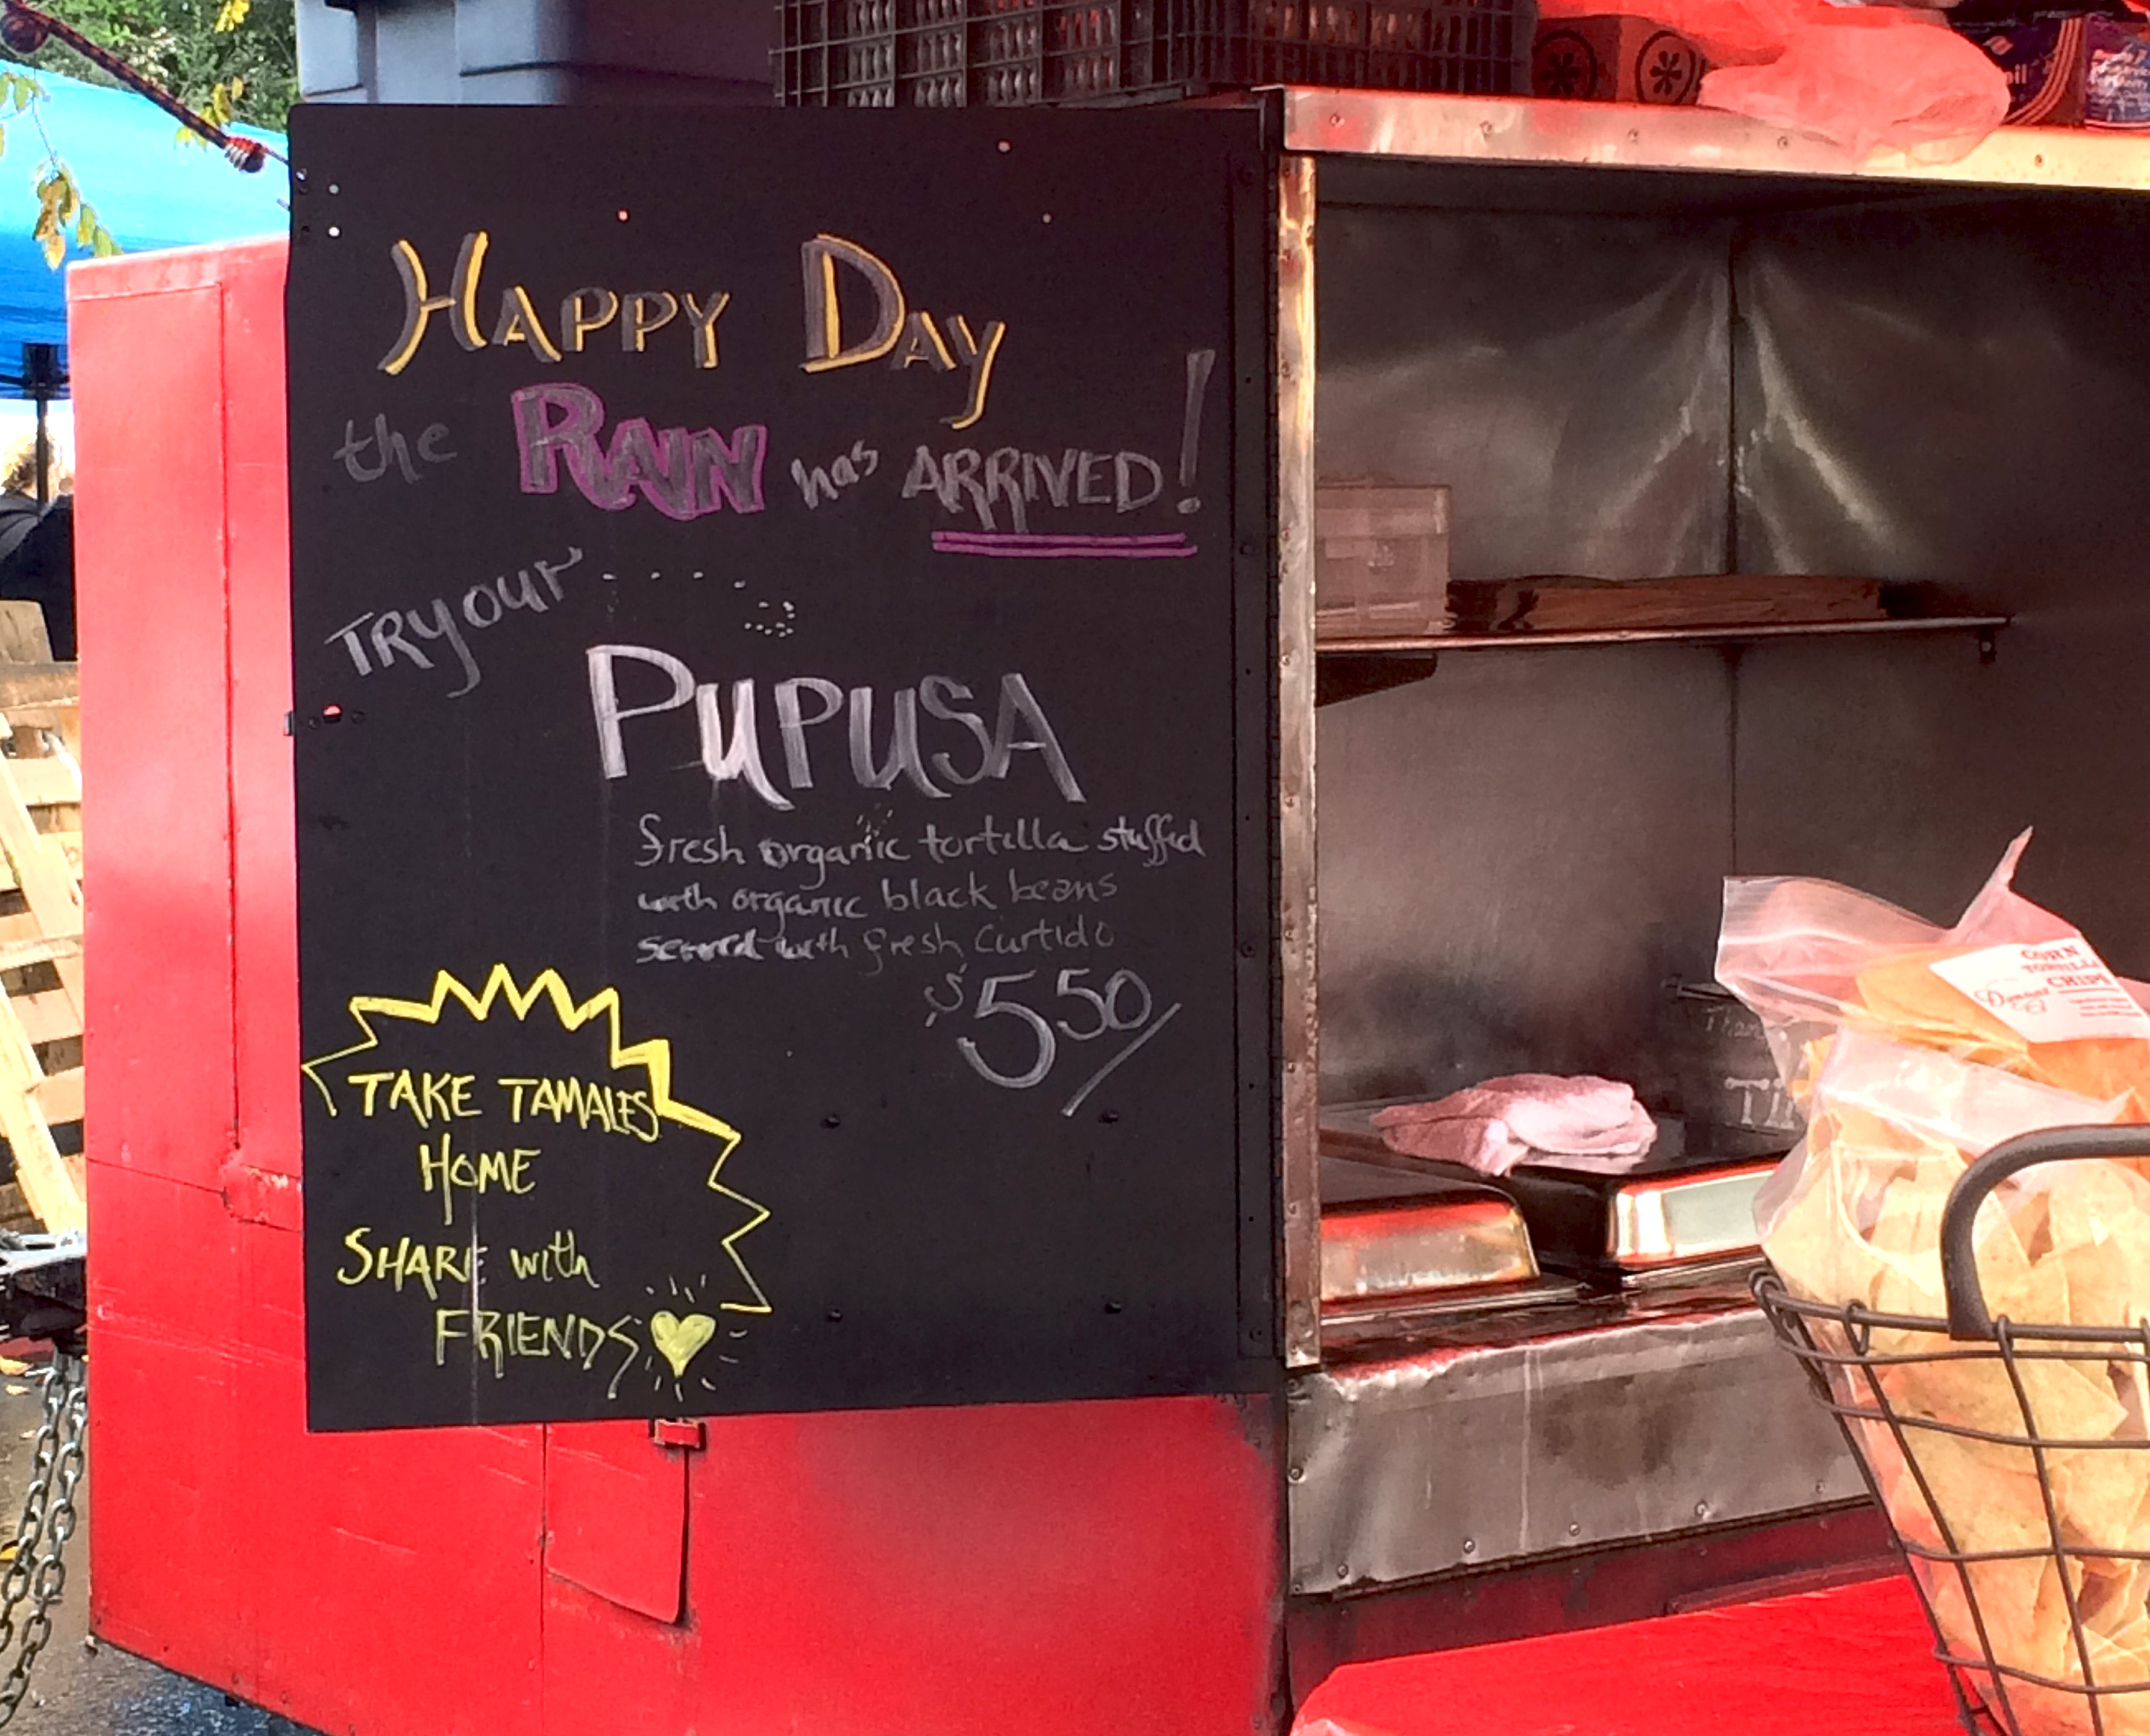 HAPPY DAY
the RAIN has ARRIVED!
TRY our
PUPUSA
fresh organic tortilla stuffed
with organic black beans
served with fresh Curtido
$5 50/
TAKE TAMALES
HOME
SHARE with
FRIENDS
CORN
TORTILLA
CHIPS